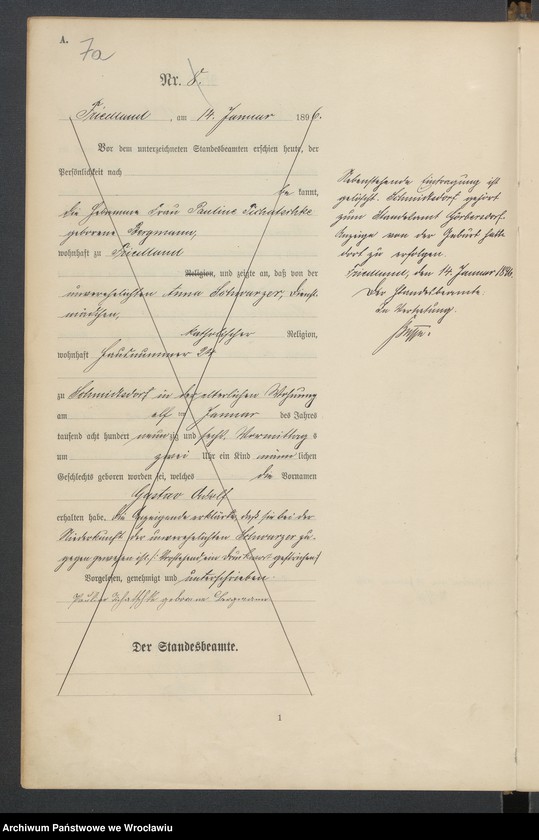 A.
7a
Nr. 8.
Friedland, am 14. Januar 1896.
Vor dem unterzeichneten Standesbeamten erschien heute, der
Persönlichkeit nach
be kannt,
die Hebamme Frau Pauline Tschatschke
geborene Bergmann,
wohnhaft zu Friedland
Religion, und zeigte an, daß von der
unverehelichten Anna Schwarzer, Dienst-
mädchen,
katholischer Religion,
wohnhaft Hausnummer
zu Schmidtsdorf in der elterlichen Wohnung
am elf ten Januar des Jahres
tausend acht hundert neunzig und sechs Vormittag s
um zwei Uhr ein Kind männ lichen
Geschlechts geboren worden sei, welches die Vornamen
Gustav Adolf
erhalten habe. Die Anzeigende erklärte, daß sie bei der
Niederkunft der unverehelichten Schwarzer zu-
gegen gewesen ist. (: Vorstehend ein Druckwort gestrichen :)
Vorgelesen, genehmigt und unterschrieben
Pauline Tschatschke geborene Bergmann
Der Standesbeamte.
1
Nebenstehende Eintragung ist
gelöscht. Schmidtsdorf gehört
zum Standesamt Görbersdorf.
Anzeige von der Geburt hatte
dort zu erfolgen.
Friedland, den 14. Januar 1896.
Der Standesbeamte
In Vertretung.
Archiwum Państwowe we Wrocławiu